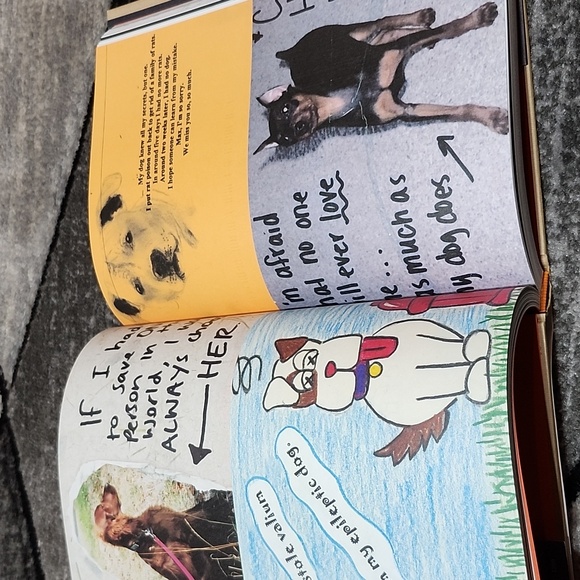 My dog knew all my secrets, but one.
I put rat poison out back to get rid of a family of rats.
In around five days I had no more rats.
Around two weeks later, I had no dog.
I hope someone can learn from my mistake.
Max, I'm so sorry.
We miss you so, so much.
afraid
no one
ever love
much as
dog does
IF I had
to save
Person in
World, I
ALWAYS
HER
stole valium
my epileptic dog.